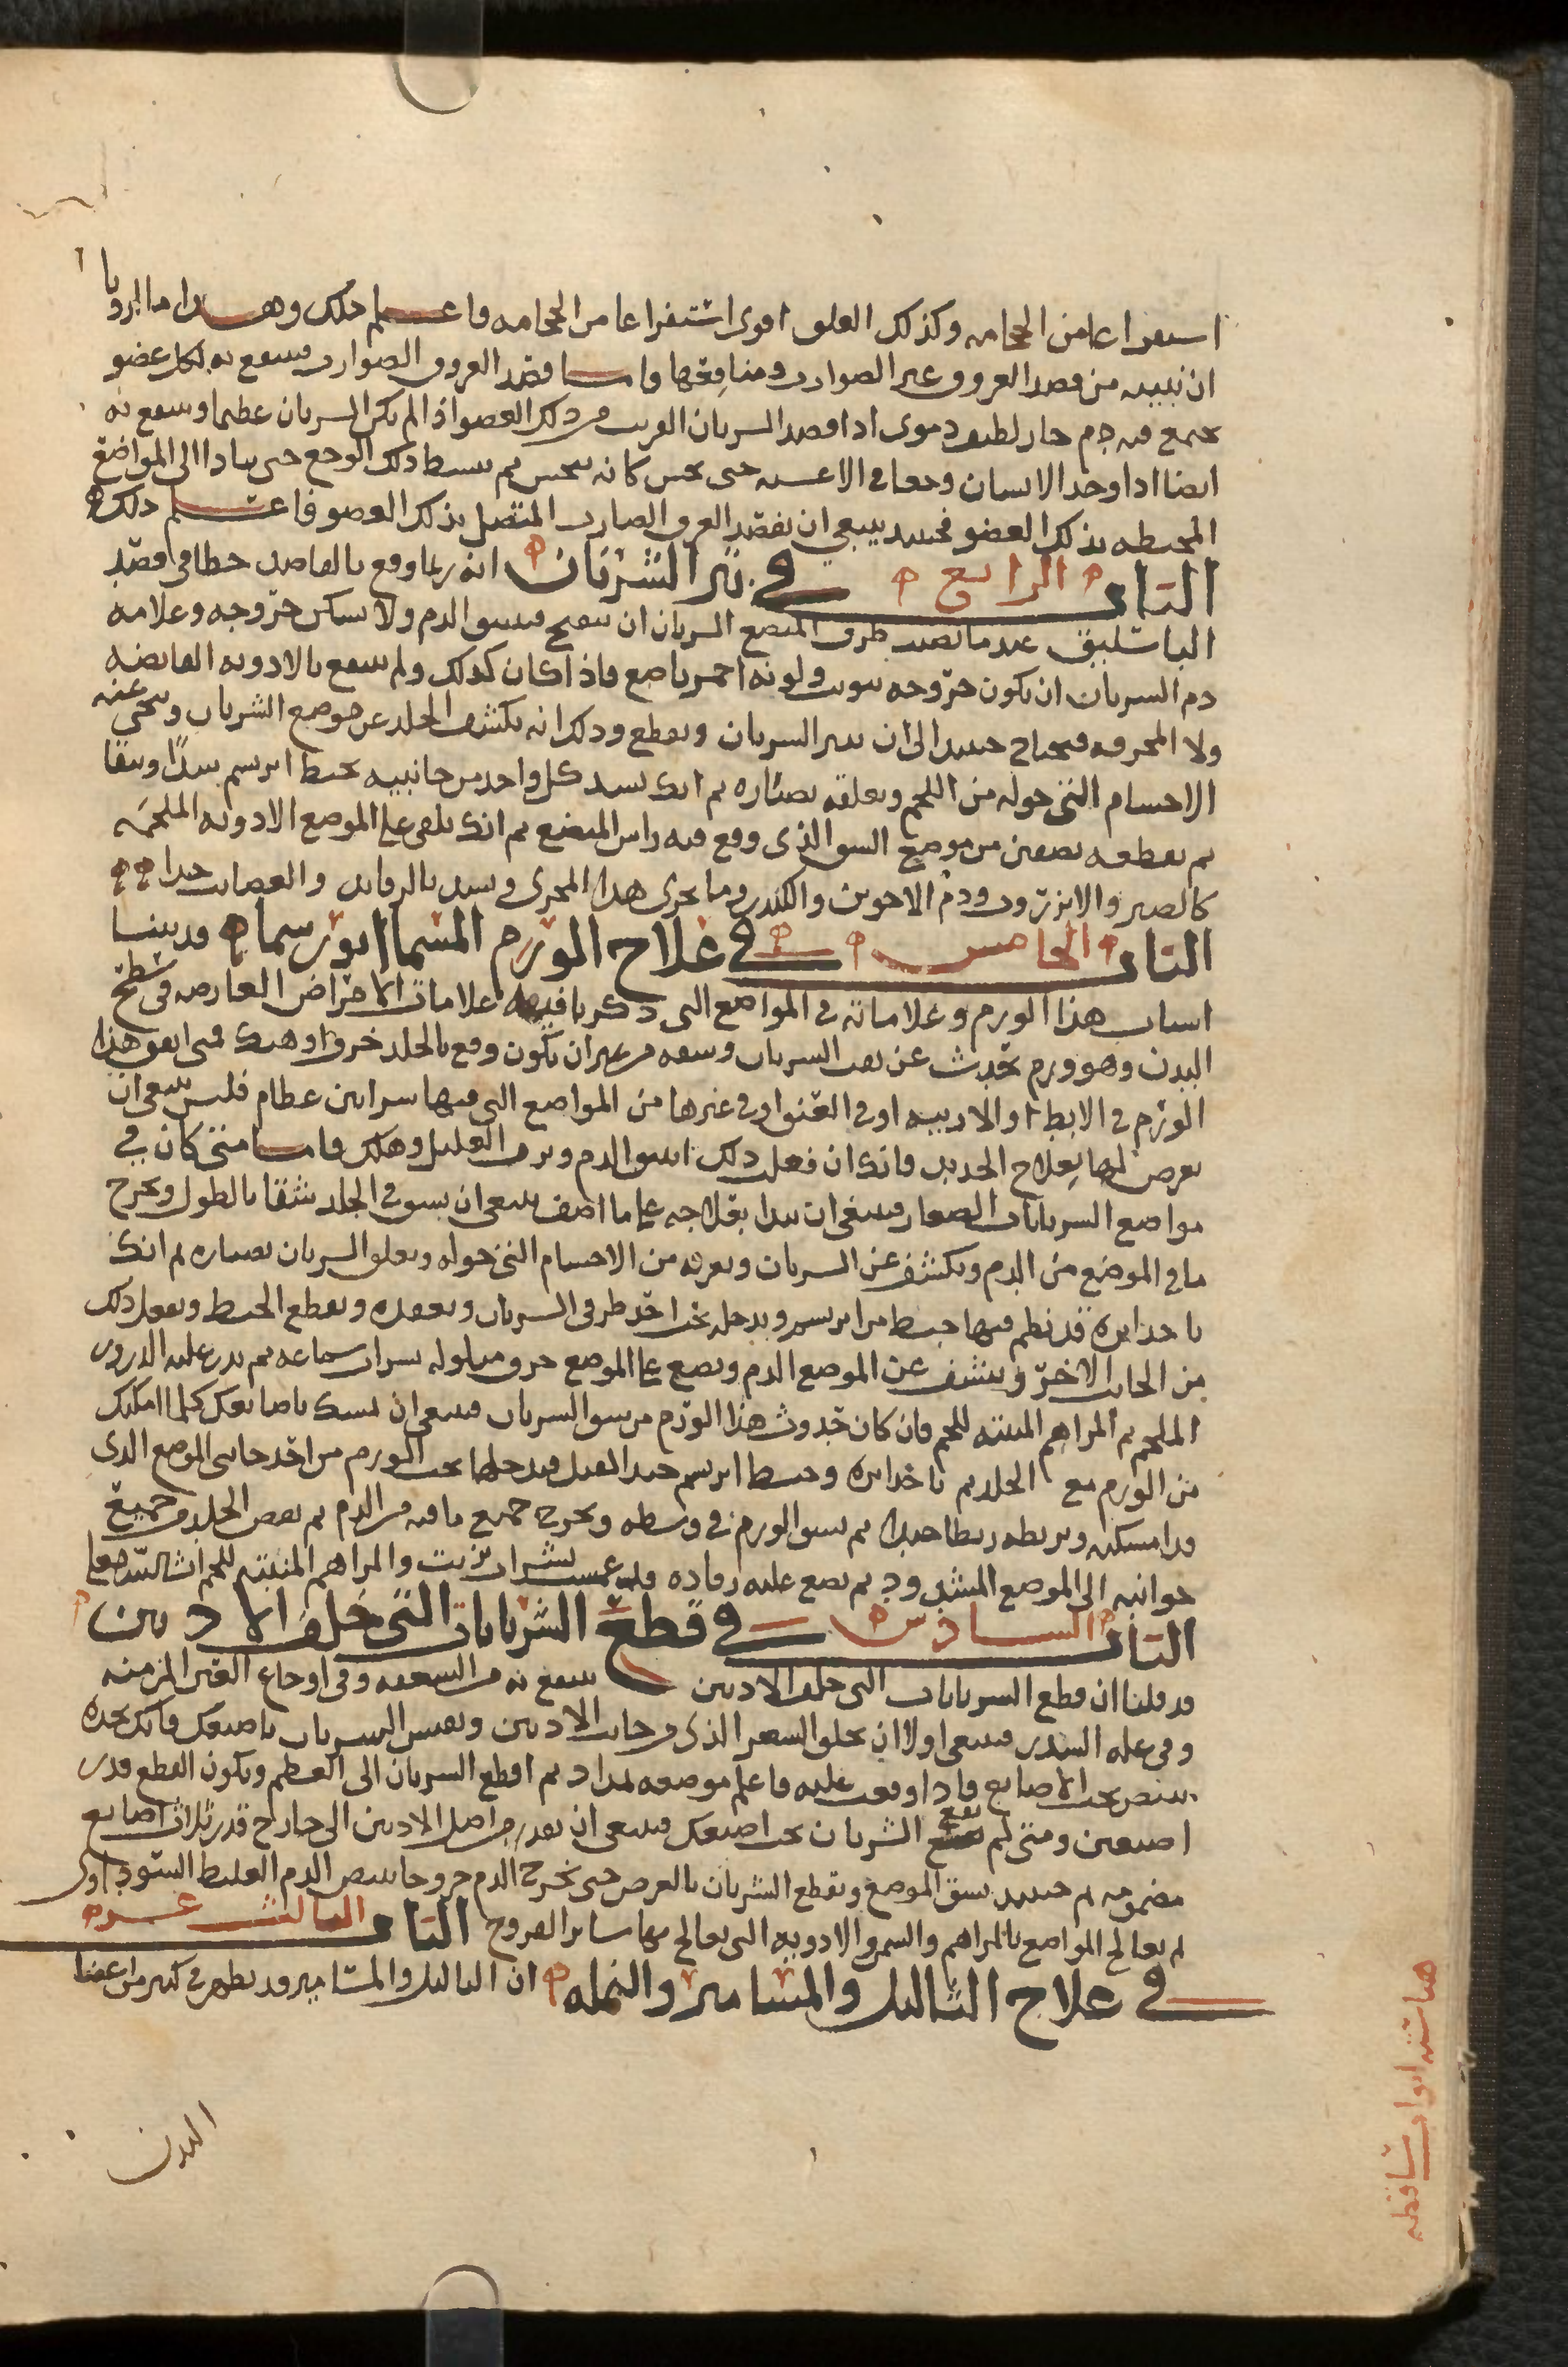 استفراغا من الحجامه وكذلك العلق اقوى استفراغا من الحجامه فاعلم ذلك وهذا ما اردنا
ان نبينه من فصد العروق غير الضوارب ومنافعها واما فصد العروق الضوارب فينتفع به لكل عضو
يجتمع فيه دم حار لطيف دموى اذا فصد الشريان القريب من ذلك العضو اذا لم يكن الشريان عظيما وينتفع به
ايضا اذا وجد الانسان وجعا فى الاغشيه حتى يحس كانه ينخس ثم ينبسط ذلك الوجع حتى يتادا الى المواضع
المحيطه بذلك العضو فحينئذ ينبغى ان يفصد العرق الضارب المتصل بذلك العضو فاعلم ذلك
الباب الرابع فى بتر الشريان انه ربما وقع بالفاصد خطا فى فصد
الباسليق عندما تصيب طرف المبضع الشريان ان ينفتح فينبثق الدم ولا يسكن خروجه وعلامة
دم الشريان ان يكون خروجه بتوثب ولونه احمر ناصع فاذا كان كذلك ولم ينتفع بالادويه القابضه
ولا المحرقه فيحتاج حينئذ الى ان يبتر الشريان ويقطع وذلك انه يكشف الجلد عن موضع الشريان وينحى عنه
الاجسام التى حوله من اللحم ويعلقه بصناره ثم انك تشد كل واحد من جانبيه بخيط ابريسم شدًا وثيقا
ثم يقطعه نصفين من موضع الشق الذى وقع فيه راس المبضع ثم انك تلقى على الموضع الادويه الملحمه
كالصبر والانزروت ودم الاخوين والكندر وما يجرى هذا المجرى وتشد بالرفايد والعصايب جيدا
الباب الخامس فى علاج الورم المسما ابورسما قد بينا
اسباب هذا الورم وعلاماته فى المواضع التى ذكرنا فيها علامات الامراض العارضه فى سطح
البدن وهو ورم يحدث عن بعث الشريان وسعه من غير ان يكون وقع بالجلد خرق او هتك فمتى اتفق هذا
الورم فى الابط او الاربيه او فى العنق او فى غيرها من المواضع التى فيها شرايين عظام فليس ينبغى ان
يعرض لها بعلاج الحديد فانك ان فعلت ذلك انبثق الدم ونزف العليل وهلك فاما متى كان فى
مواضع الشريانات الصغار فينبغى ان تبدا بعلاجه على ما اصف ينبغى ان يشق فى الجلد شقا بالطول ويخرج
ما فى الموضع من الدم ويكشف عن الشريان ويعريه من الاجسام التى حوله ويعلق الشريان بصناره ثم انك
تاخذ ابره قد نظم فيها خيط من ابريسم ويدخله تحت احد طرفى الشريان ويعقده ويقطع الخيط ويفعل ذلك
من الجانب الاخر وينشف عن الموضع الدم ويضع على الموضع خرق مبلوله بشراب ساعه ثم يذر عليه الذرور
الملحم ثم المراهم المنبته للحم فان كان حدوث هذا الورم من شق الشريان فينبغى ان تمسك باصابعك كلما امكنك
من الورم مع الجلد ثم تاخذ ابره وخيط ابريسم جيد الفتل فيدخلها تحت الورم من احد جانبى الموضع الذى
قد امسكته وتربطه ربطا جيدا ثم يشق الورم فى وسطه ويخرج جميع ما فيه من الدم ثم يقص الجلد من جميع
جوانبه الى الموضع المشدود ثم يضع عليه رفاده قد غمست بشراب وزيت والمراهم المنبته للحم انشا الله تعالى
الباب السادس فى قطع الشريانات التى خلف الاذنين
قد قلنا ان قطع الشريانات التى خلف الاذنين ينتفع به من السعفه وفى اوجاع العين المزمنه
وفى علة السدر فينبغى اولا ان يحلق الشعر الذى فى جانب الاذنين وتفتش الشريان باصبعك فانك تجده
ينبض تحت الاصابع فاذا وقعت عليه فاعلم موضعه بمداد ثم اقطع الشريان الى العظم ويكون القطع قدر
اصبعين ومتى لم يقع الشريان تحت اصبعك فينبغى ان تقدر من اصل الاذنين الى خارج قدر ثلاث اصابع
مضمومه ثم حينئذ يشق الموضع ويقطع الشريان بالعرض حتى يخرج الدم
ثم يعالج المواضع بالمراهم والسمن والادويه التى يعالج بها ساير القروح الباب الثالث عشر
فى علاج الثاليل والمسامير والنمله ان الثاليل والمسامير قد يظهر فى كثير من اعضا
البدن
هنا ستة ابواب ساقطه